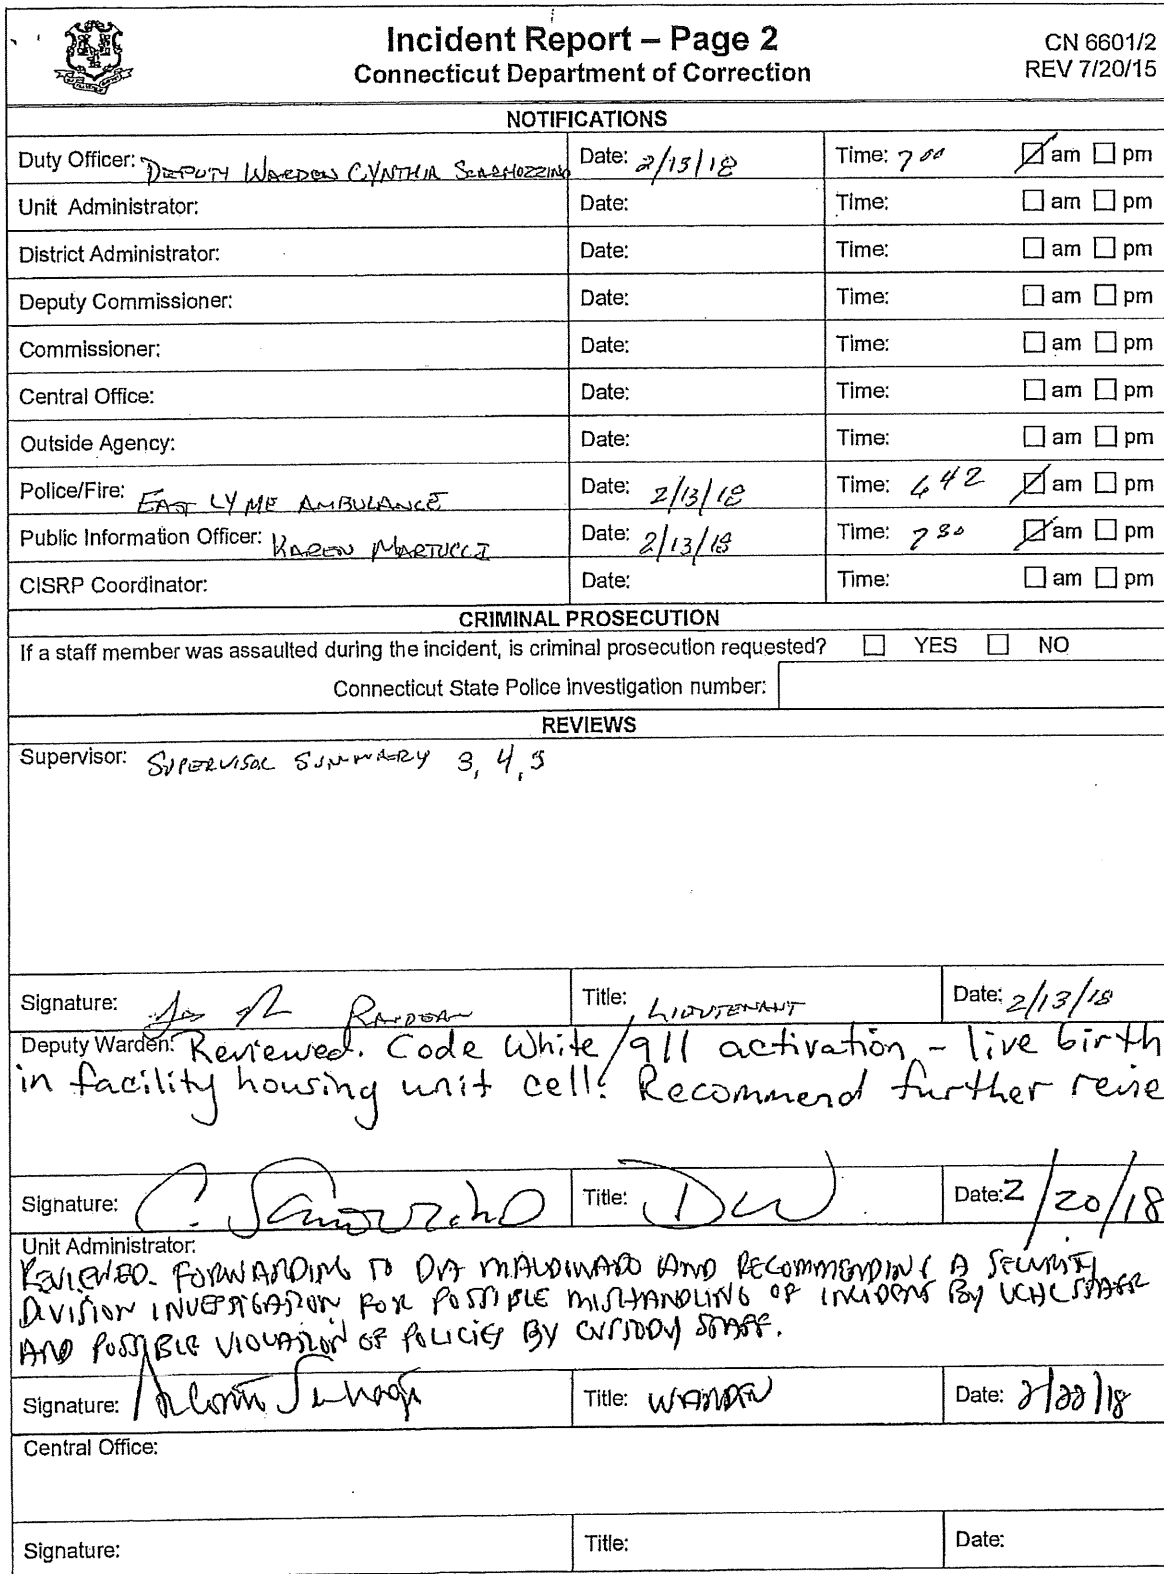 Incident Report – Page 2
Connecticut Department of Correction
CN 6601/2
REV 7/20/15
NOTIFICATIONS
Duty Officer: DEPUTY WARDEN CYNTHIA SCARMOZZINO Date: 2/13/18 Time: 7 00 am pm
Unit Administrator: Date: Time: am pm
District Administrator: Date: Time: am pm
Deputy Commissioner: Date: Time: am pm
Commissioner: Date: Time: am pm
Central Office: Date: Time: am pm
Outside Agency: Date: Time: am pm
Police/Fire: EAST LYME AMBULANCE Date: 2/13/18 Time: 6 42 am pm
Public Information Officer: KAREN MARTUCCI Date: 2/13/18 Time: 7 30 am pm
CISRP Coordinator: Date: Time: am pm
CRIMINAL PROSECUTION
If a staff member was assaulted during the incident, is criminal prosecution requested? YES NO
Connecticut State Police investigation number:
REVIEWS
Supervisor: SUPERVISOR SUMMARY 3, 4, 5
Signature: Title: LIEUTENANT Date: 2/13/18
Deputy Warden: Reviewed. Code White/911 activation – live birth
in facility housing unit cell. Recommend further revie
Signature: Title: DW Date: 2/20/18
Unit Administrator:
REVIEWED. FORWARDING TO MALDONADO AND RECOMMENDING A SECURITY
DIVISION INVESTIGATION FOR POSSIBLE MISHANDLING OF INCIDENT BY UCHC STAFF
AND POSSIBLE VIOLATION OF POLICIES BY CUSTODY STAFF.
Signature: Title: WARDEN Date: 2/22/18
Central Office:
Signature: Title: Date: